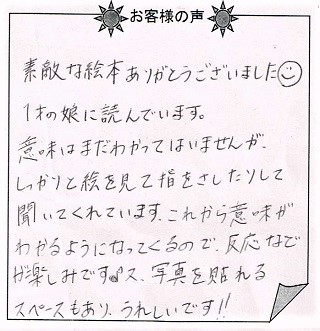 お客様の声
素敵な絵本ありがとうございました
1才の娘に読んでいます。
意味はまだわかってはいませんが、
しっかりと絵を見て指をさしたりして
聞いてくれています。これから意味が
わかるようになってくるので、反応など
が楽しみです♪又、写真を貼れる
スペースもあり、うれしいです!!